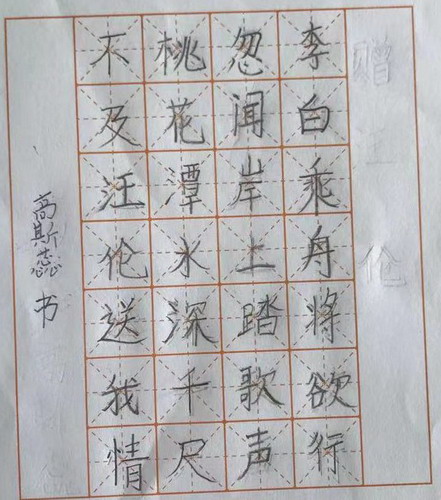 赠汪伦
李白乘舟将欲行
忽闻岸上踏歌声
桃花潭水深千尺
不及汪伦送我情
高斯蕊书